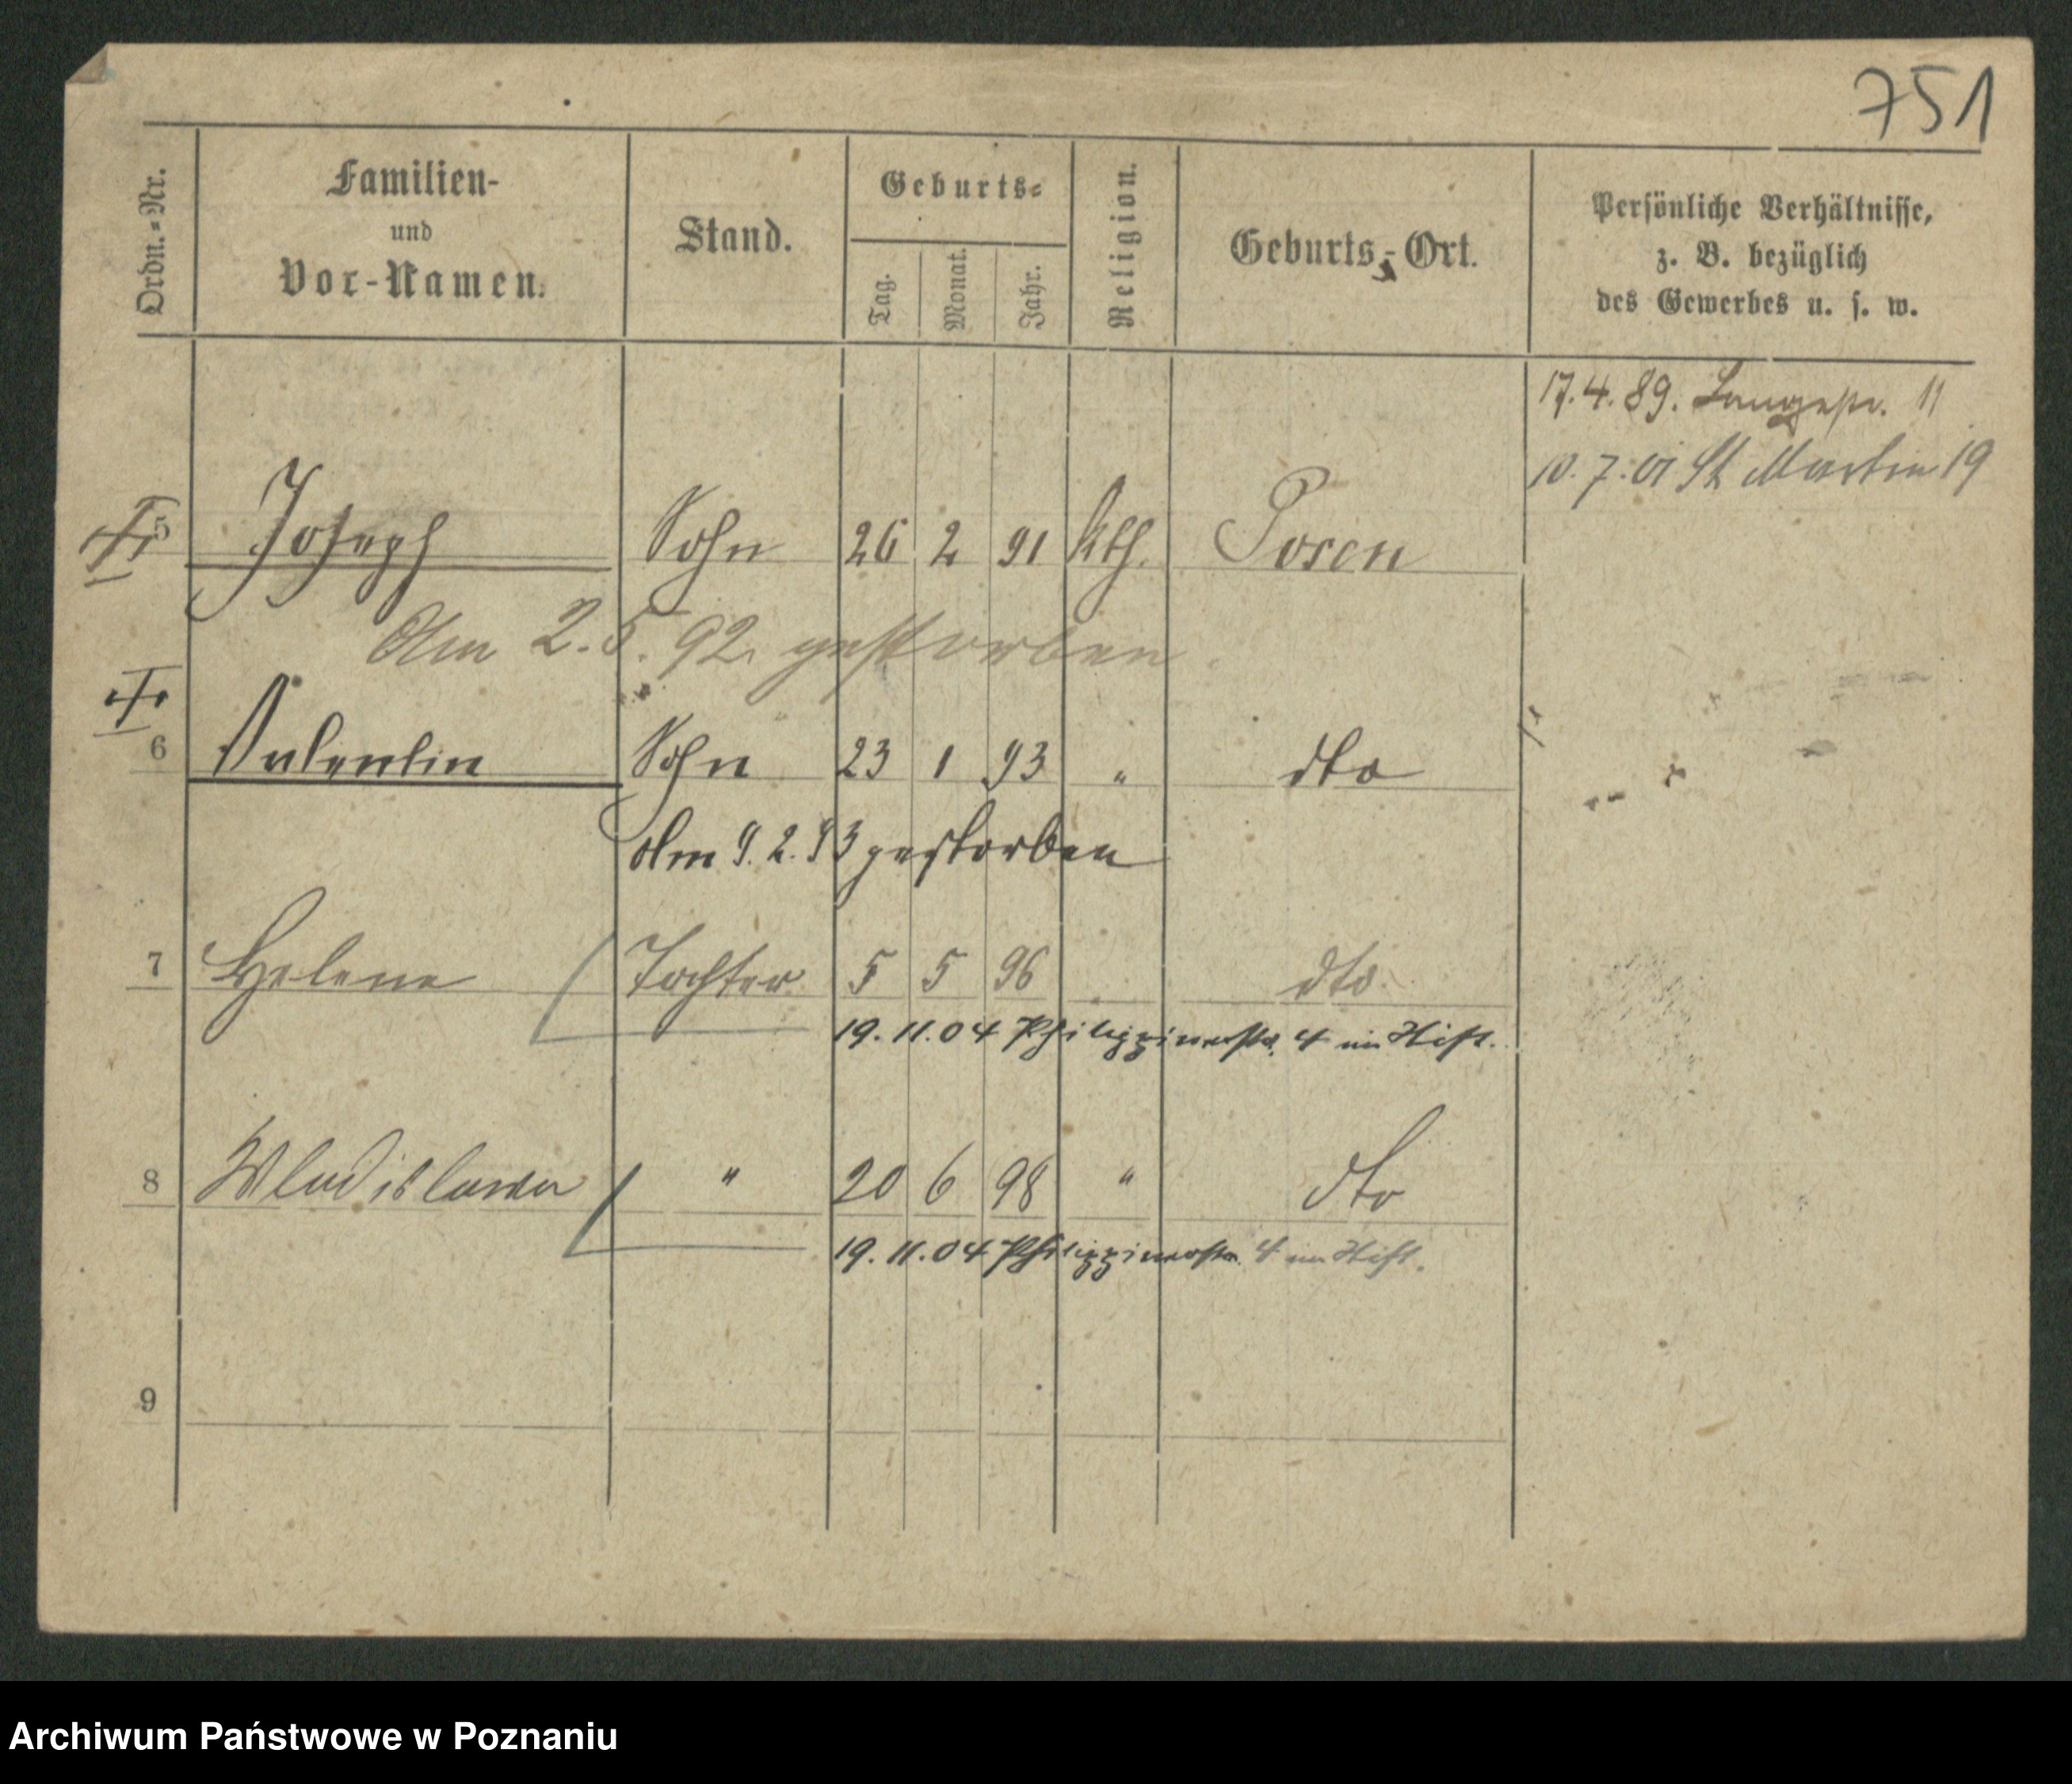 751
Ordn.-Nr.
Familien-
und
Vor-Namen.
Stand.
Geburts-
Tag.
Monat.
Jahr.
Religion.
Geburts-Ort.
Persönliche Verhältnisse,
z. B. bezüglich
des Gewerbes u. s. w.
17.4.89. Langestr. 11
10.7.01 St Martin 19
5 Joseph Sohn 26 2 91 kth. Posen
Am 2.5.92 gestorben.
6 Valentin Sohn 23 1 93 " dto
Am 9.2.93 gestorben
7 Helene Tochter 5 5 96 dto.
19.11.04 Philippinerstr. 4 im Stift.
8 Wladislawa " 20 6 98 " dto
19.11.04 Philippinerstr. 4 im Stift.
9
Archiwum Państwowe w Poznaniu